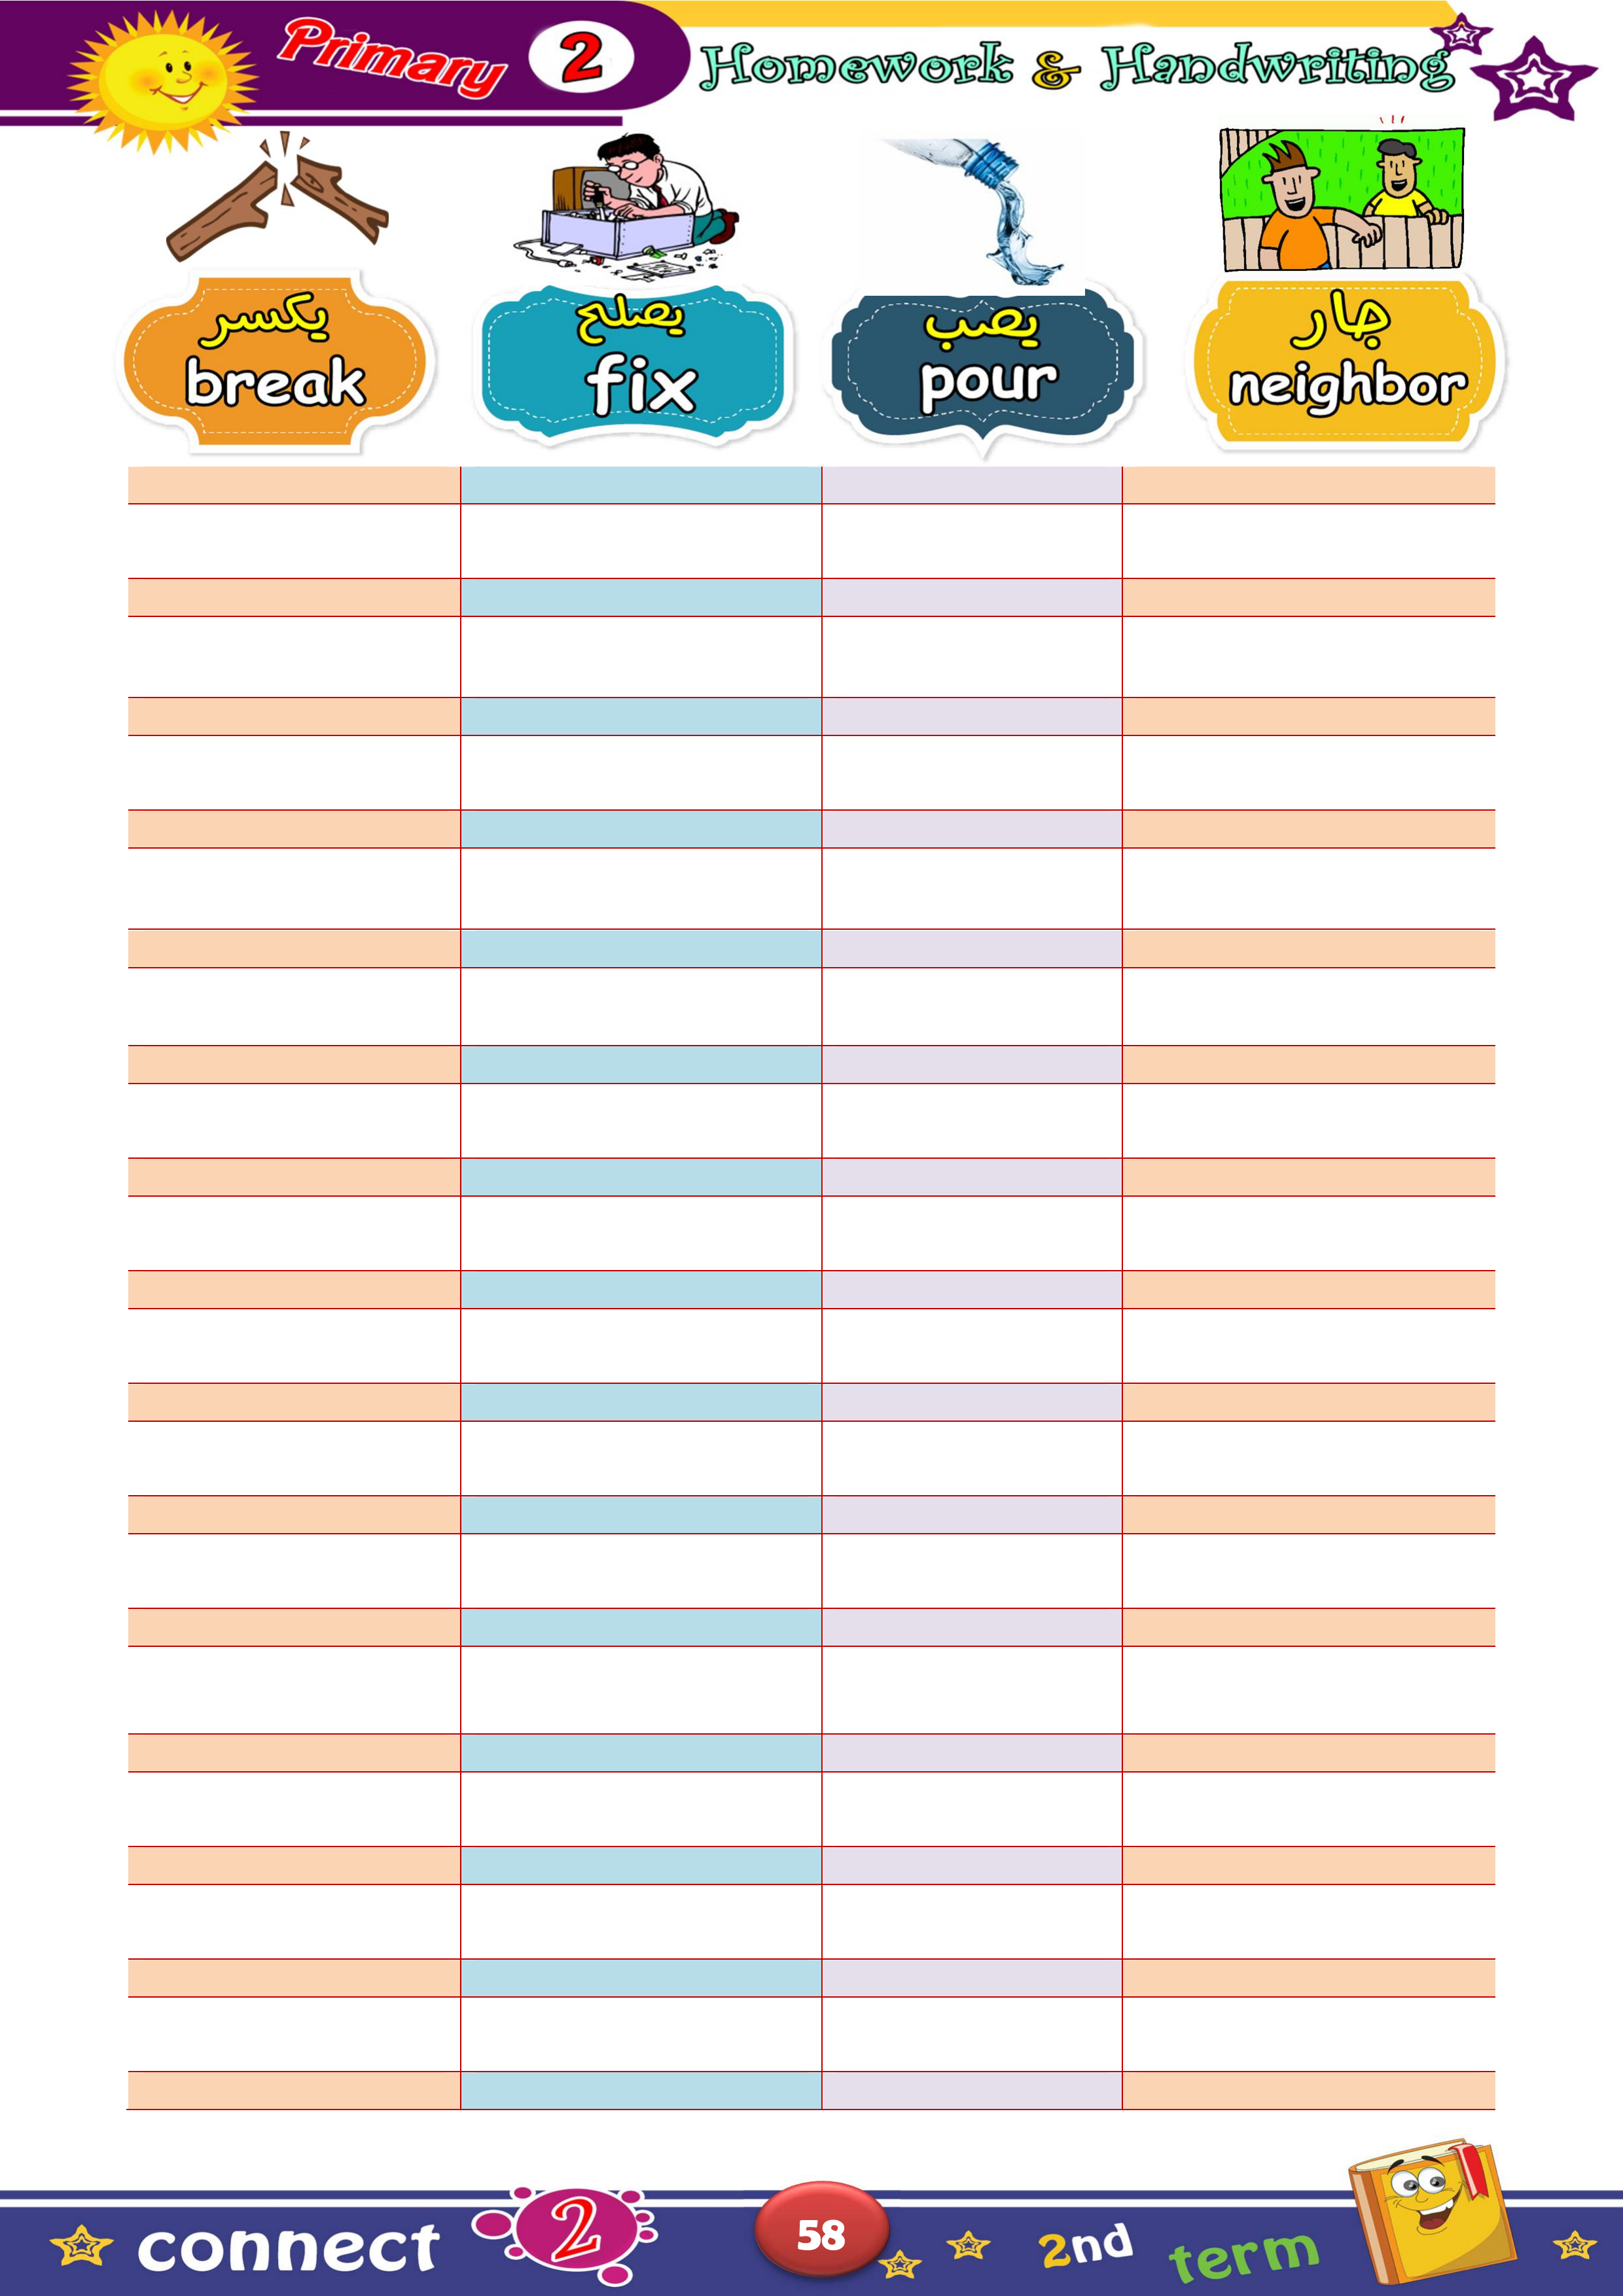 Primary 2 Homework & Handwriting
يكسر
break
يصلح
fix
يصب
pour
جار
neighbor
connect 2 58 2nd term